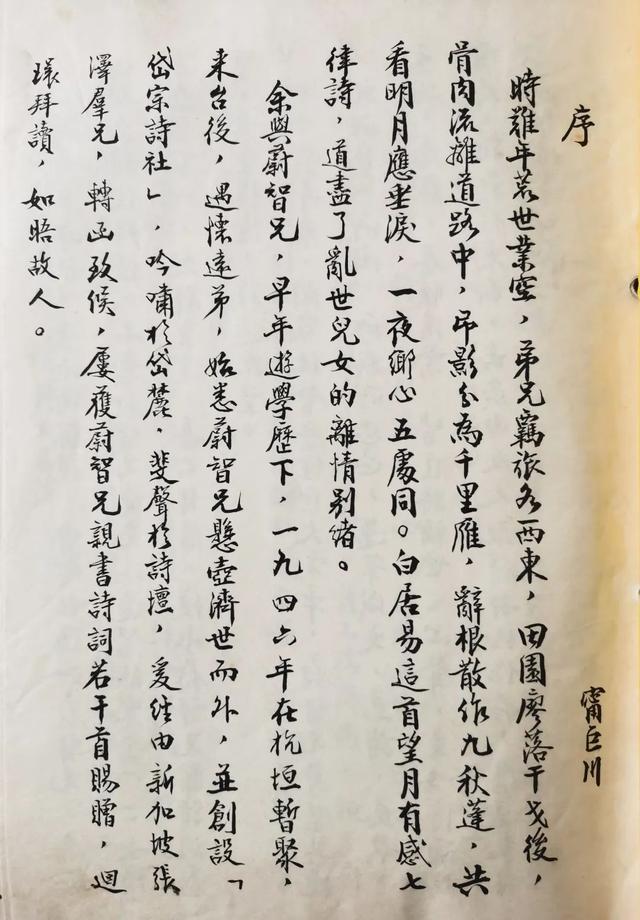 序
甯巨川
時難年荒世業空，弟兄羈旅各西東，田園廖落干戈後，
骨肉流離道路中，吊影分為千里雁，辭根散作九秋蓬，共
看明月應垂淚，一夜鄉心五處同。白居易這首望月有感七
律詩，道盡了亂世兒女的離情别緒。
余與蔚智兄，早年遊學歷下，一九四六年在杭垣暫聚，
来台後，遇懷遠弟，始悉蔚智兄懸壺濟世而外，並創設「
岱宗詩社」，吟嘯於岱麓，斐聲於詩壇，爰經由新加坡張
澤羣兄，轉函致候，屢獲蔚智兄親書詩詞若干首賜贈，迴
環拜讀，如晤故人。